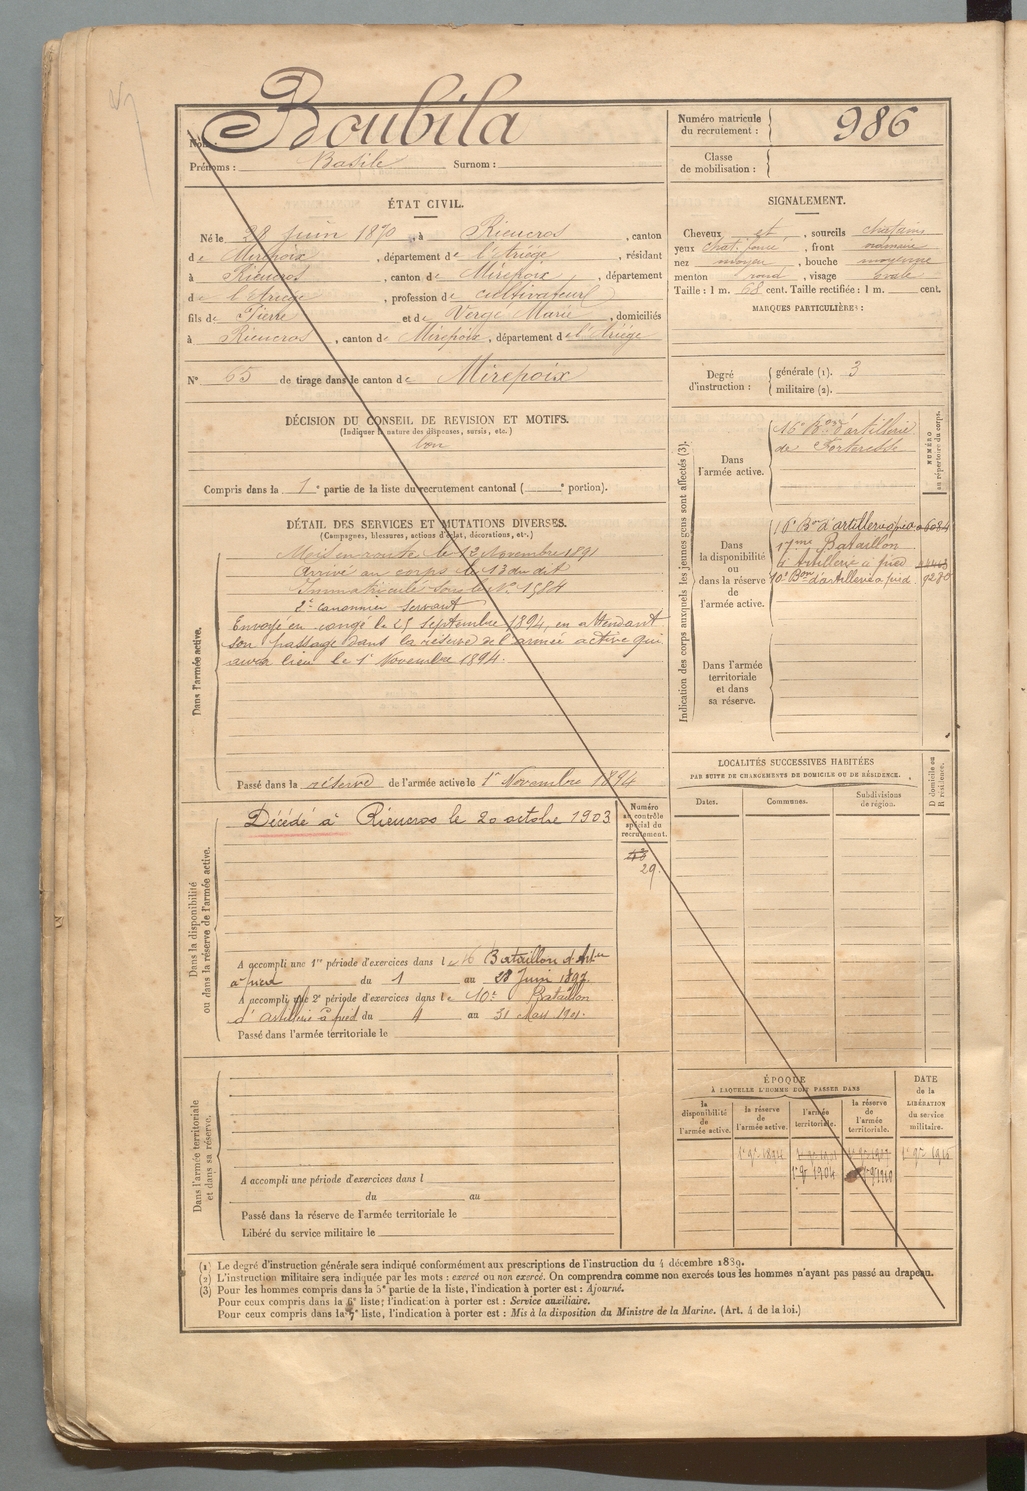 Nom : Boubila
Prénoms : Basile Surnom :
Numéro matricule du recrutement : 986
Classe de mobilisation :
ÉTAT CIVIL.
Né le 28 Juin 1870, à Rieucros, canton
de Mirepoix, département de l'Ariège, résidant
à Rieucros, canton de Mirepoix, département
de l'Ariège, profession de cultivateur
fils de Pierre et de Vergé Marie, domiciliés
à Rieucros, canton de Mirepoix, département de l'Ariège
N° 65 de tirage dans le canton de Mirepoix
SIGNALEMENT.
Cheveux et, sourcils chatains
yeux chat. foncé, front ordinaire
nez moyen, bouche moyenne
menton rond, visage ovale
Taille : 1 m. 68 cent. Taille rectifiée : 1 m. cent.
MARQUES PARTICULIÈRES :
Degré d'instruction : générale (1). 3
militaire (2).
DÉCISION DU CONSEIL DE REVISION ET MOTIFS.
(Indiquer la nature des dispenses, sursis, etc.)
bon
Compris dans la 1e partie de la liste du recrutement cantonal ( e portion).
DÉTAIL DES SERVICES ET MUTATIONS DIVERSES.
(Campagnes, blessures, actions d'éclat, décorations, etc.)
Dans l'armée active.
Mis en route le 12 Novembre 1891
Arrivé au corps le 13 du dit
Immatriculé sous le N° 1584
2e canonnier servant
Envoyé en congé le 25 septembre 1894, en attendant
son passage dans la réserve de l'armée active qui
aura lieu le 1 Novembre 1894.
Passé dans la réserve de l'armée active le 1er Novembre 1894
Indication des corps auxquels les jeunes gens sont affectés (3).
NUMÉRO au répertoire du corps.
Dans l'armée active.
16e Bon d'artillerie
de Forteresse
Dans la disponibilité ou dans la réserve de l'armée active.
16e Bon d'artillerie à pied 6084
17me Bataillon
d'Artillerie à pied
10e Bon d'artillerie à pied 9280
Dans l'armée territoriale et dans sa réserve.
Dans la disponibilité ou dans la réserve de l'armée active.
Décédé à Rieucros le 20 octobre 1903
Numéro au contrôle spécial du recrutement.
29
A accompli une 1re période d'exercices dans le 16 Bataillon d'Artie
à pied du 1 au 28 Juin 1897.
A accompli une 2e période d'exercices dans le 10e Bataillon
d'artillerie à pied du 4 au 31 Mars 1901.
Passé dans l'armée territoriale le
LOCALITÉS SUCCESSIVES HABITÉES
PAR SUITE DE CHANGEMENTS DE DOMICILE OU DE RÉSIDENCE.
Dates. Communes. Subdivisions de région. D domicile ou R résidence.
Dans l'armée territoriale et dans sa réserve.
A accompli une période d'exercices dans l
du au
Passé dans la réserve de l'armée territoriale le
Libéré du service militaire le
ÉPOQUE
À LAQUELLE L'HOMME DOIT PASSER DANS
la disponibilité de l'armée active.
la réserve de l'armée active.
l'armée territoriale.
la réserve de l'armée territoriale.
DATE de la LIBÉRATION du service militaire.
1er 9bre 1894 1er 9bre 1916
1er 9bre 1904 1er 9bre 1910
(1) Le degré d'instruction générale sera indiqué conformément aux prescriptions de l'instruction du 4 décembre 1889.
(2) L'instruction militaire sera indiquée par les mots : exercé ou non exercé. On comprendra comme non exercés tous les hommes n'ayant pas passé au drapeau.
(3) Pour les hommes compris dans la 5e partie de la liste, l'indication à porter est : Ajourné.
Pour ceux compris dans la 6e liste, l'indication à porter est : Service auxiliaire.
Pour ceux compris dans la 7e liste, l'indication à porter est : Mis à la disposition du Ministre de la Marine. (Art. 4 de la loi.)